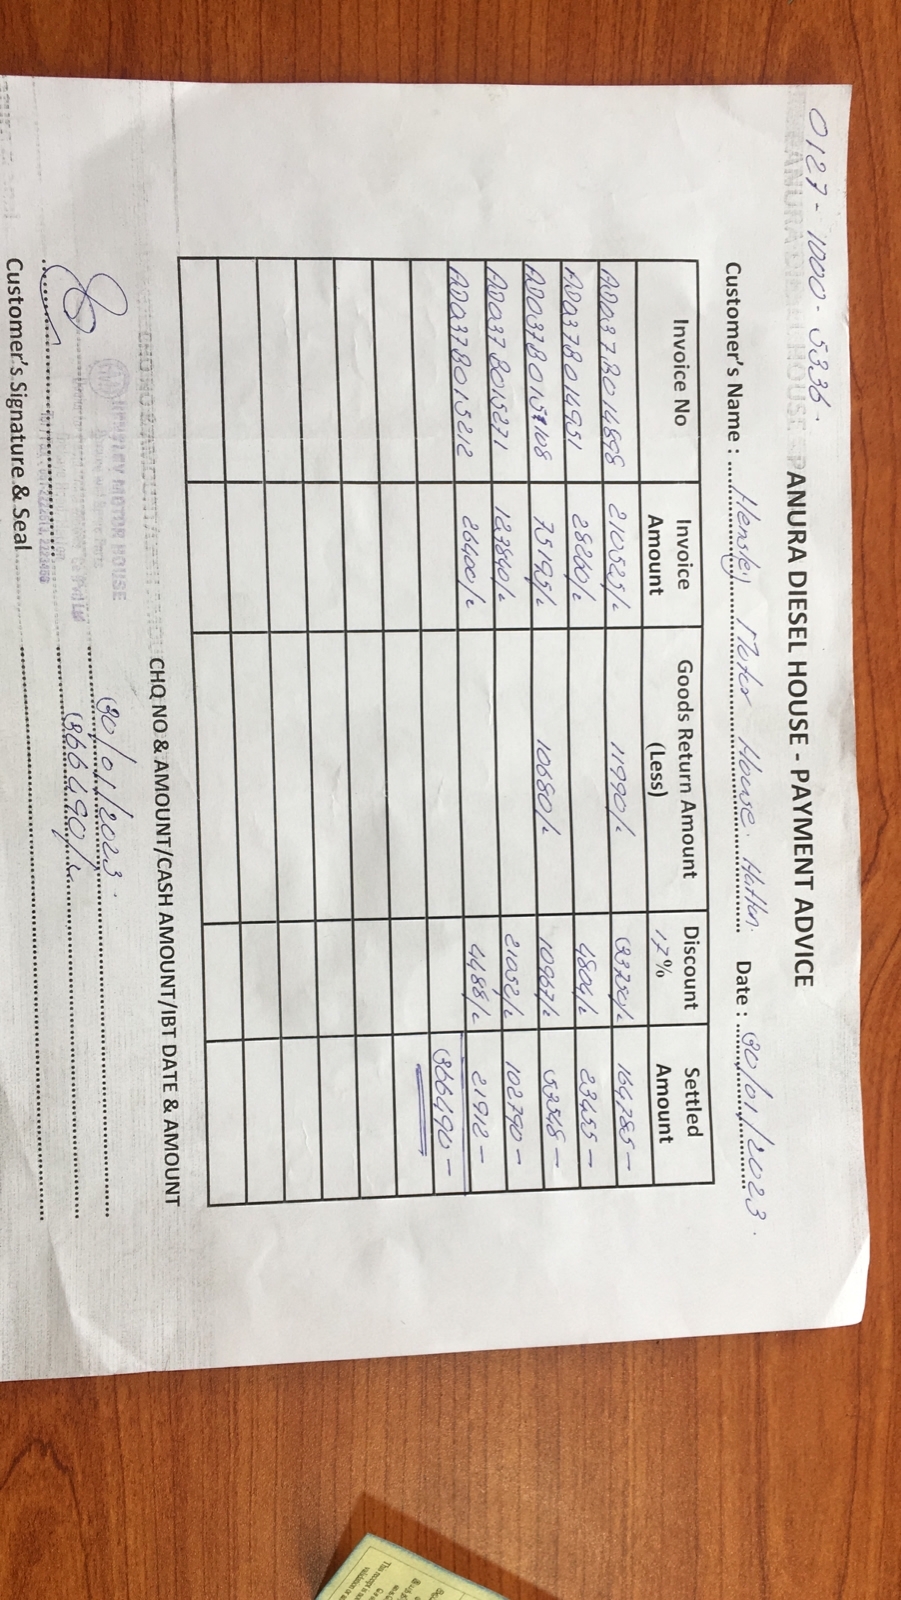 0127-1000-5336.
ANURA DIESEL HOUSE - PAYMENT ADVICE
Customer's Name : Hensley Motor House. Hatton. Date : 30/01/2023.
Invoice No Invoice Amount Goods Return Amount (Less) Discount 17% Settled Amount
AD037B014898 210525/= 11990/= 33750/= 164785 -
AD037B014951 28260/= 4804/= 23455 -
AD037B015108 75195/= 10680/= 10967/= 53548 -
AD037B015271 123840/= 21052/= 102790 -
AD037B015212 26400/= 4488/= 21912 -
366490 -
CHQ NO & AMOUNT/CASH AMOUNT/IBT DATE & AMOUNT
HENSLEY MOTOR HOUSE
30/01/2023.
366490/=
Customer's Signature & Seal